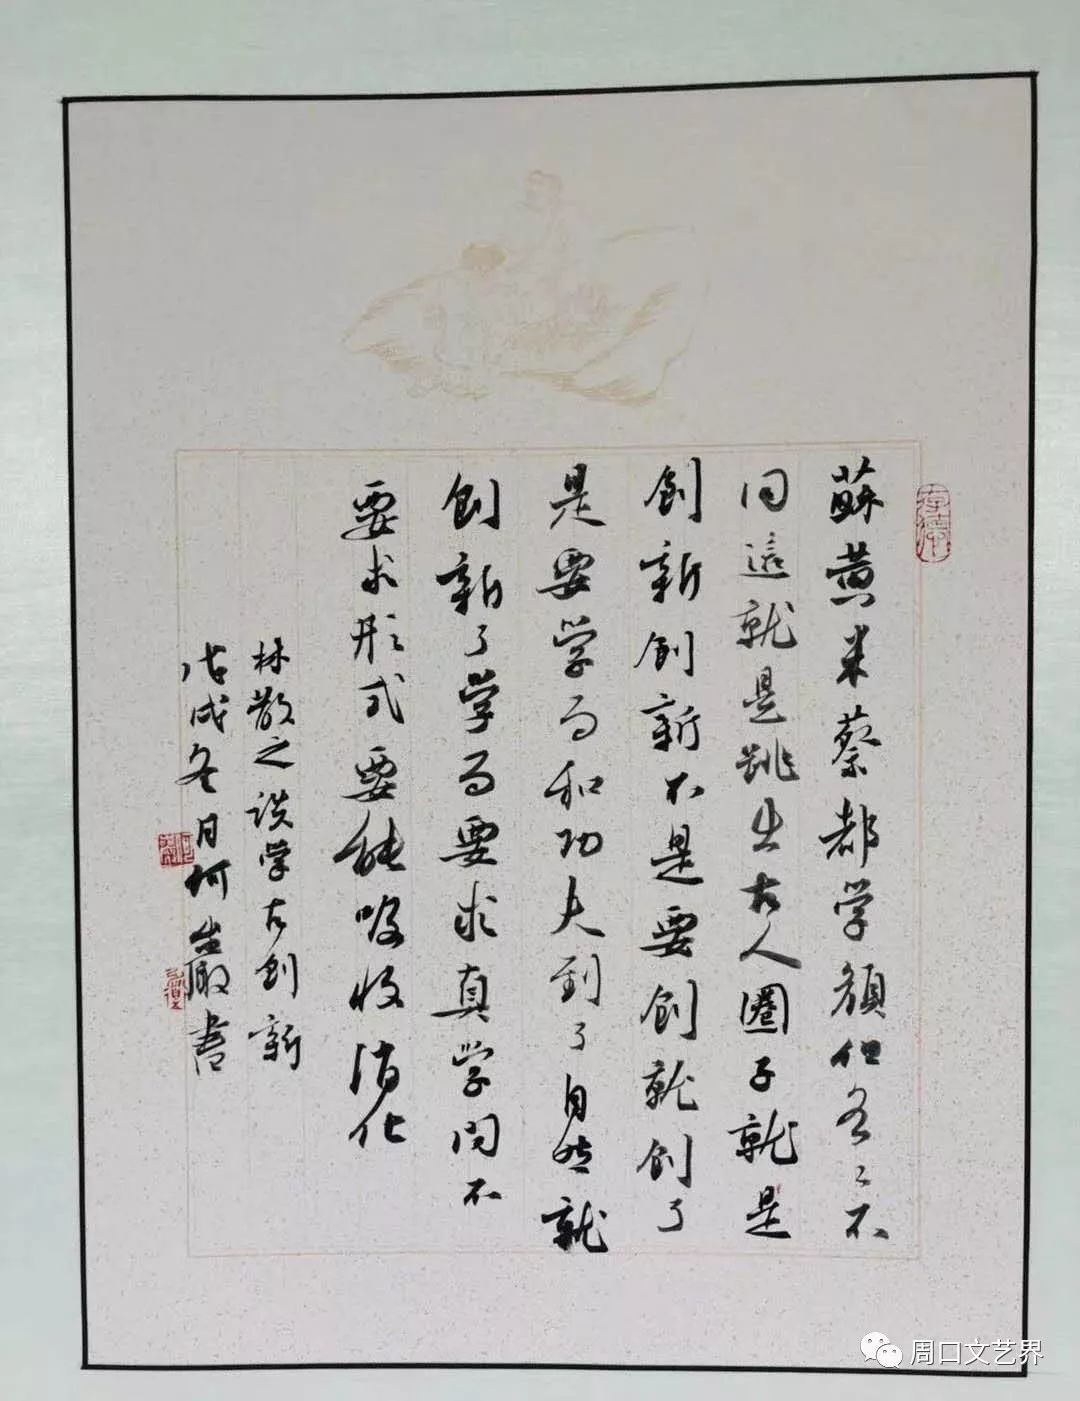 蘇黄米蔡都学顔但各〻不
同這就是跳出古人圈子就是
創新創新不是要創就創了
是要学习和功夫到了自然就
創新了学习要求真学问不
要求形式要能吸收消化
林散之谈学古創新
戊戌冬日何岩書
周口文艺界